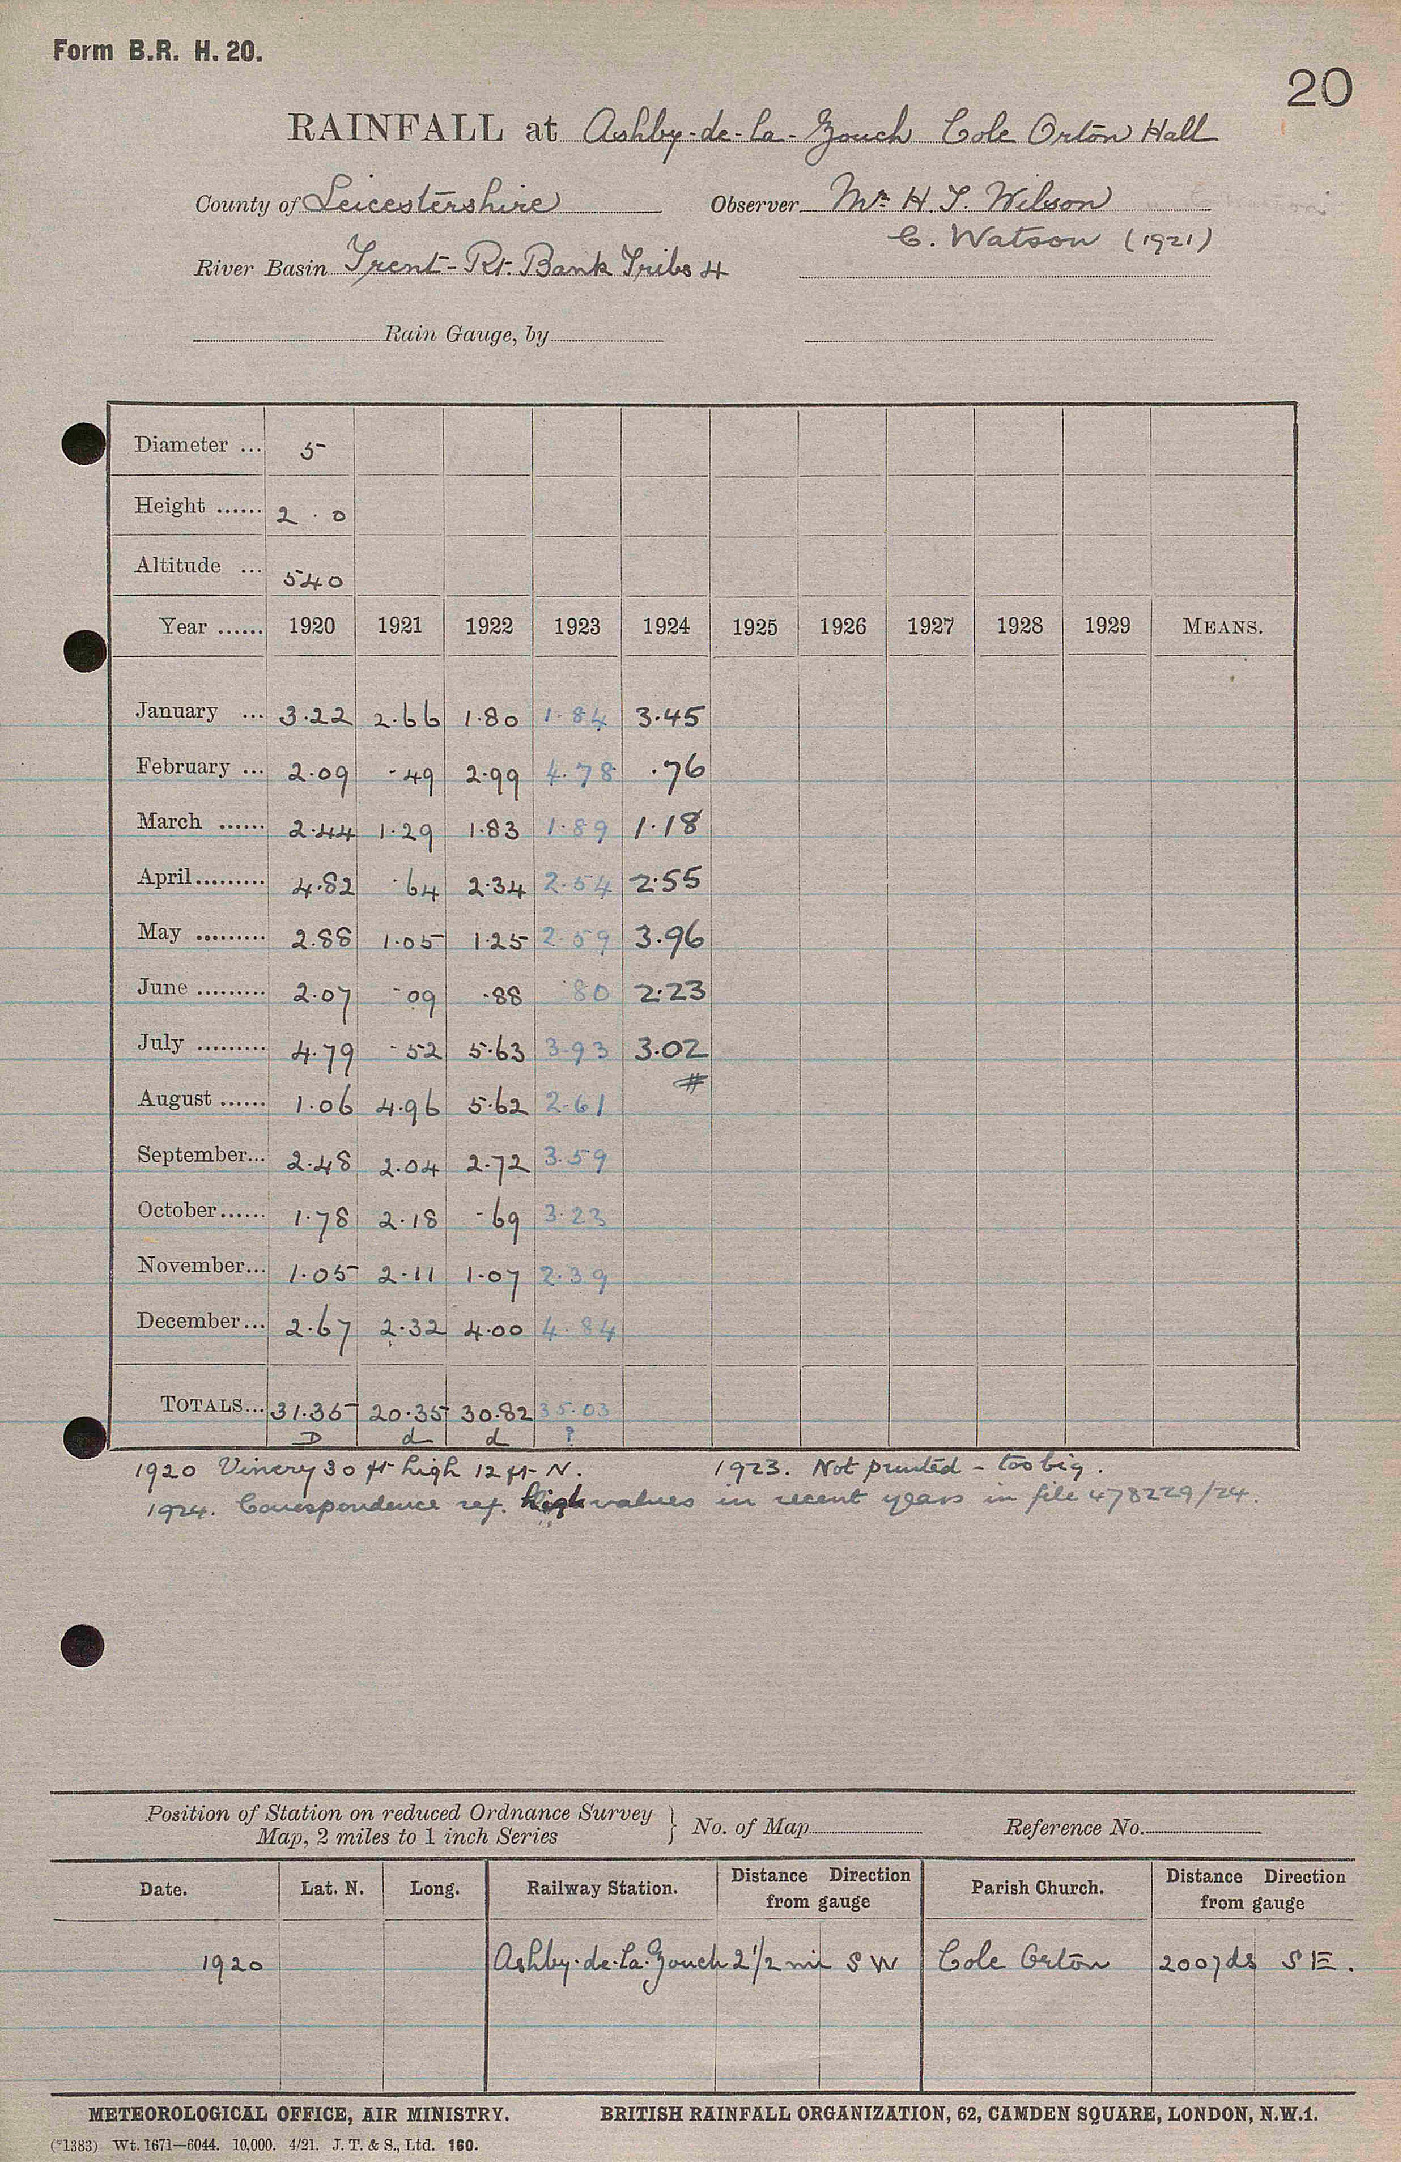 Form B.R. H. 20.
20
RAINFALL at Ashby-de-la-Zouch Cole Orton Hall
County of Leicestershire Observer Mr H. T. Wilson
C. Watson (1921)
River Basin Trent - Rt. Bank Tribs 4
Rain Gauge, by
Diameter ... 5
Height ...... 2 . 0
Altitude ... 540
Year ...... 1920 1921 1922 1923 1924 1925 1926 1927 1928 1929 MEANS.
January ... 3.22 2.66 1.80 1.84 3.45
February ... 2.09 .49 2.99 4.78 .76
March ...... 2.44 1.29 1.83 1.89 1.18
April......... 4.82 .64 2.34 2.54 2.55
May ......... 2.88 1.05 1.25 2.59 3.96
June ......... 2.07 .09 .88 .80 2.23
July ......... 4.79 .52 5.63 3.93 3.02
#
August ...... 1.06 4.96 5.62 2.61
September... 2.48 2.04 2.72 3.59
October...... 1.78 2.18 .69 3.23
November... 1.05 2.11 1.07 2.39
December... 2.67 2.32 4.00 4.84
TOTALS... 31.35 20.35 30.82 35.03
D d d ?
1920 Vinery 30 ft high 12 ft N. 1923. Not printed - too big.
1924. Correspondence ref. high values in recent years in file 478229/24.
Position of Station on reduced Ordnance Survey
Map, 2 miles to 1 inch Series } No. of Map Reference No.
Date. Lat. N. Long. Railway Station. Distance Direction from gauge Parish Church. Distance Direction from gauge
1920 Ashby-de-la-Zouch 2 1/2 mi S W Cole Orton 200yds S E.
METEOROLOGICAL OFFICE, AIR MINISTRY. BRITISH RAINFALL ORGANIZATION, 62, CAMDEN SQUARE, LONDON, N.W.1.
(*1383) Wt. 1671—6044. 10,000. 4/21. J. T. & S., Ltd. 160.